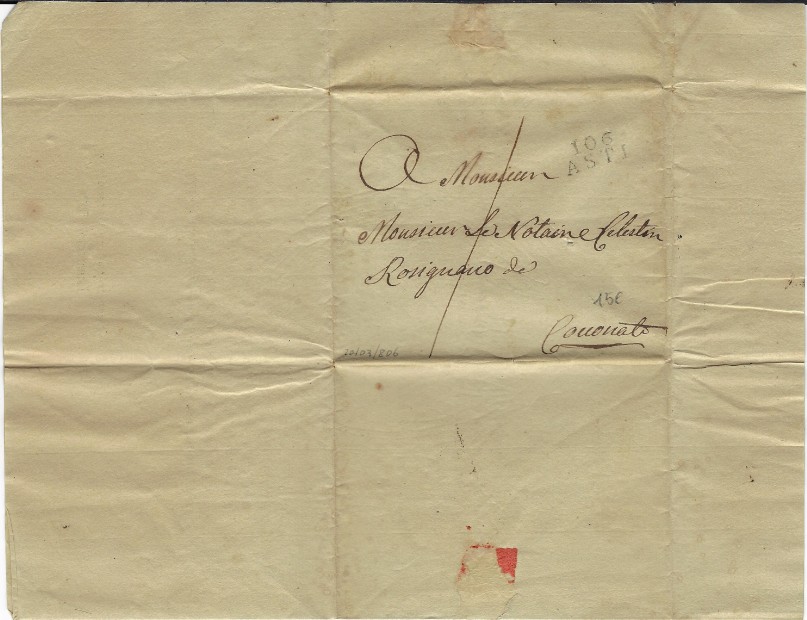 106
ASTI
A Monsieur
Monsieur Le Notaire Celestin
Rosignano de
15€
Coconato
20/03/806